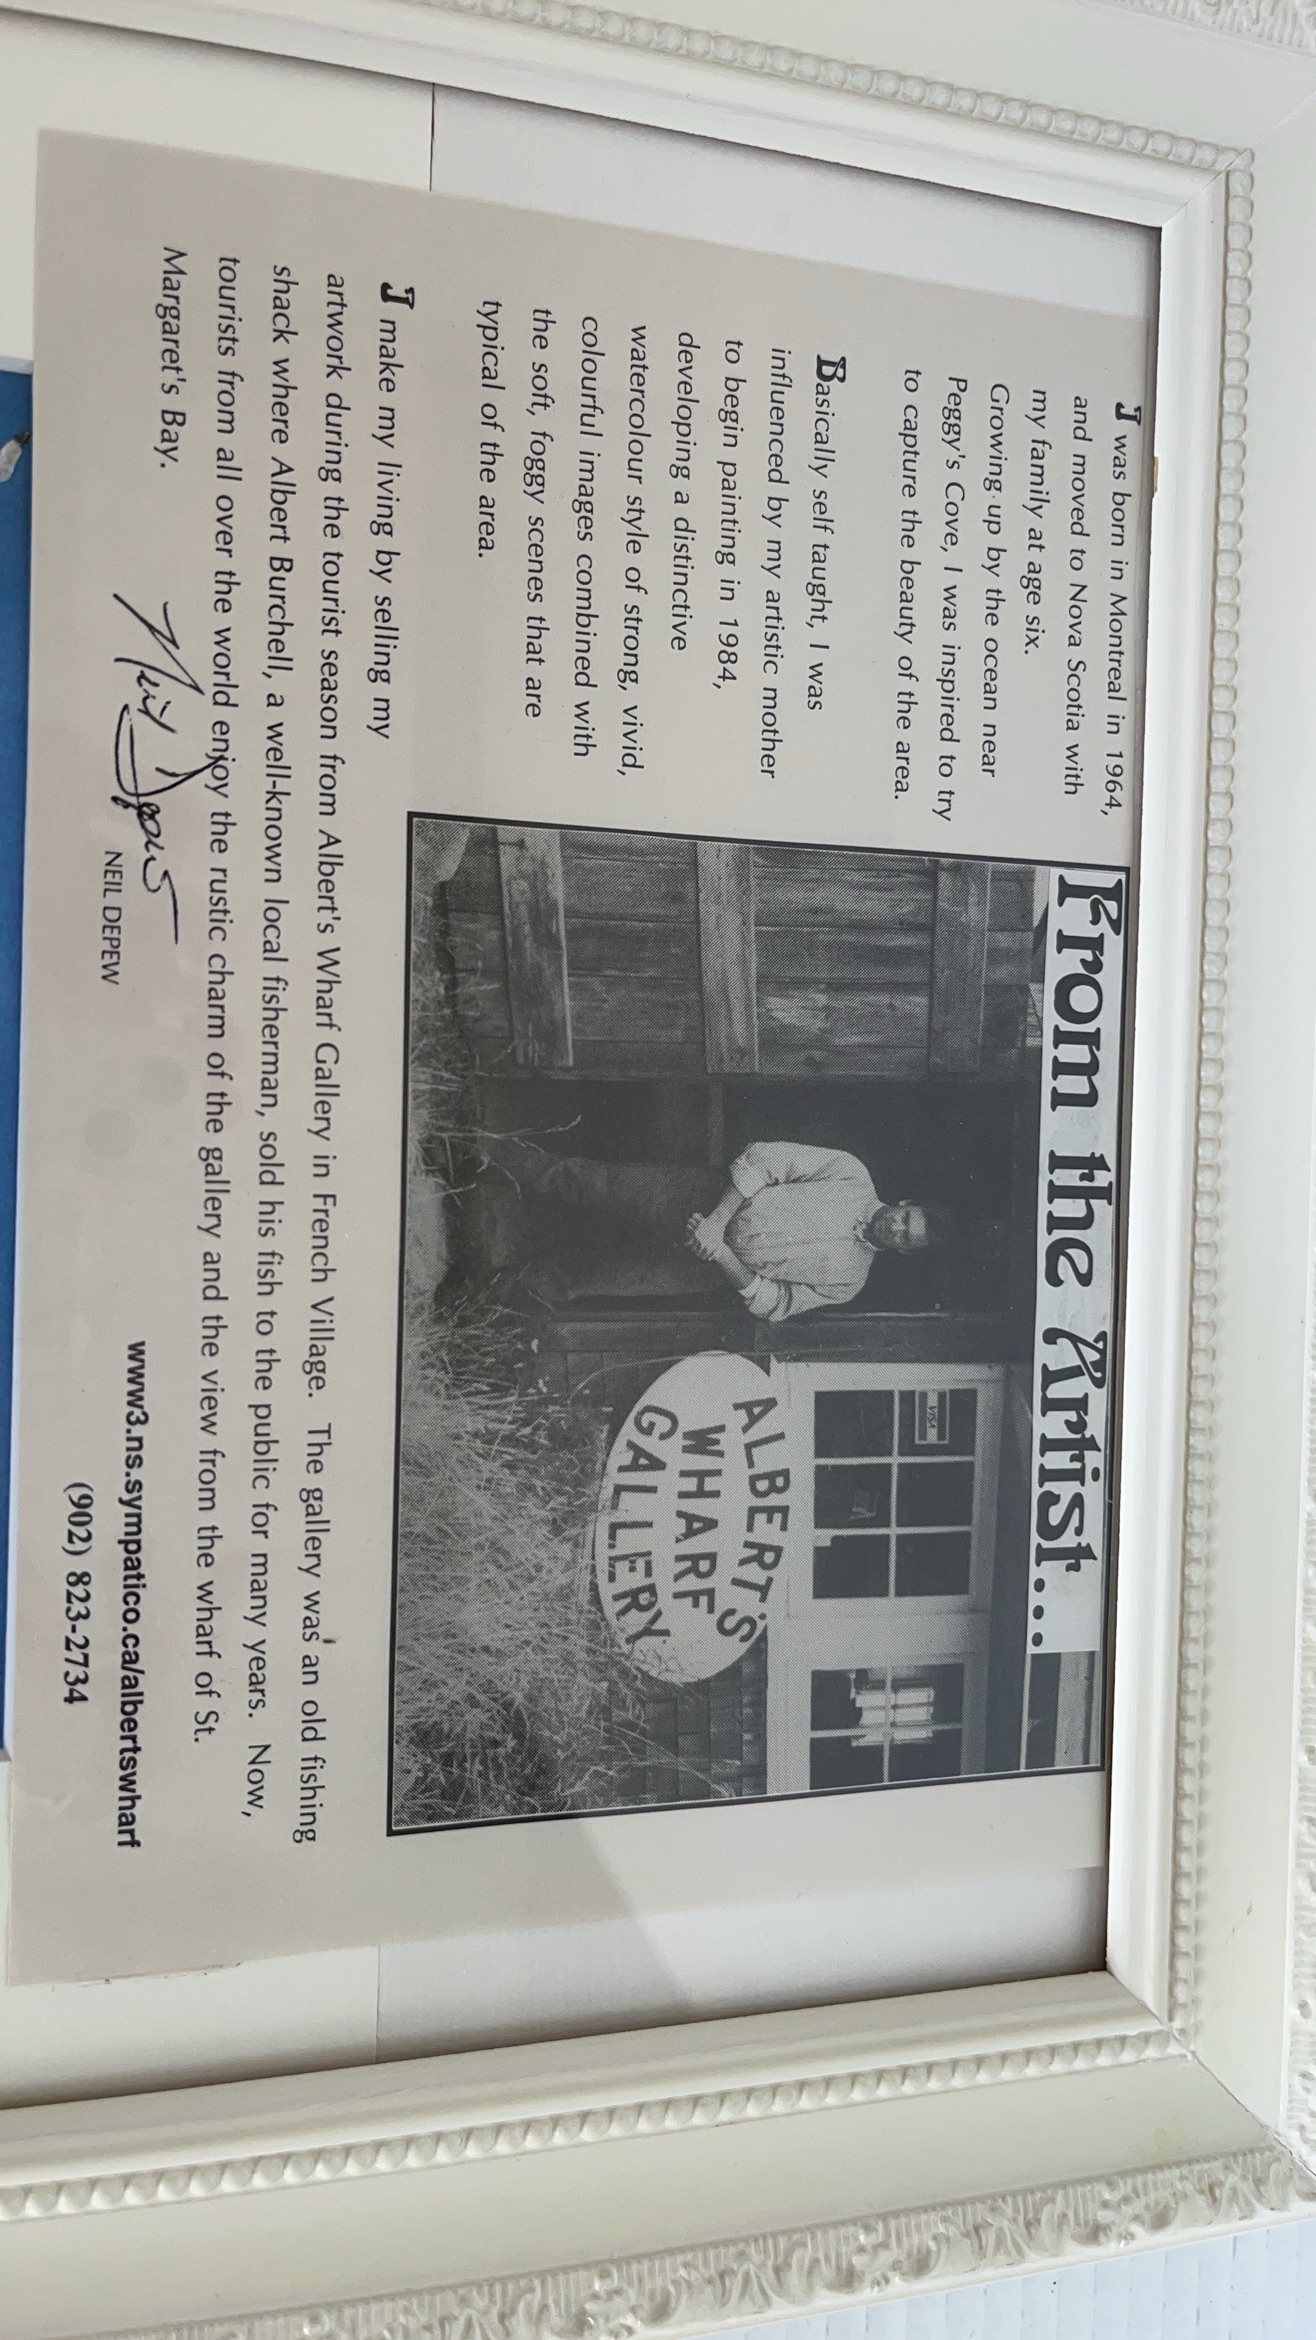 From the Artist...
I was born in Montreal in 1964,
and moved to Nova Scotia with
my family at age six.
Growing up by the ocean near
Peggy's Cove, I was inspired to try
to capture the beauty of the area.
Basically self taught, I was
influenced by my artistic mother
to begin painting in 1984,
developing a distinctive
watercolour style of strong, vivid,
colourful images combined with
the soft, foggy scenes that are
typical of the area.
VISA
ALBERT'S
WHARF
GALLERY
I make my living by selling my
artwork during the tourist season from Albert's Wharf Gallery in French Village. The gallery was an old fishing
shack where Albert Burchell, a well-known local fisherman, sold his fish to the public for many years. Now,
tourists from all over the world enjoy the rustic charm of the gallery and the view from the wharf of St.
Margaret's Bay.
Neil Depew
NEIL DEPEW
www3.ns.sympatico.ca/albertswharf
(902) 823-2734